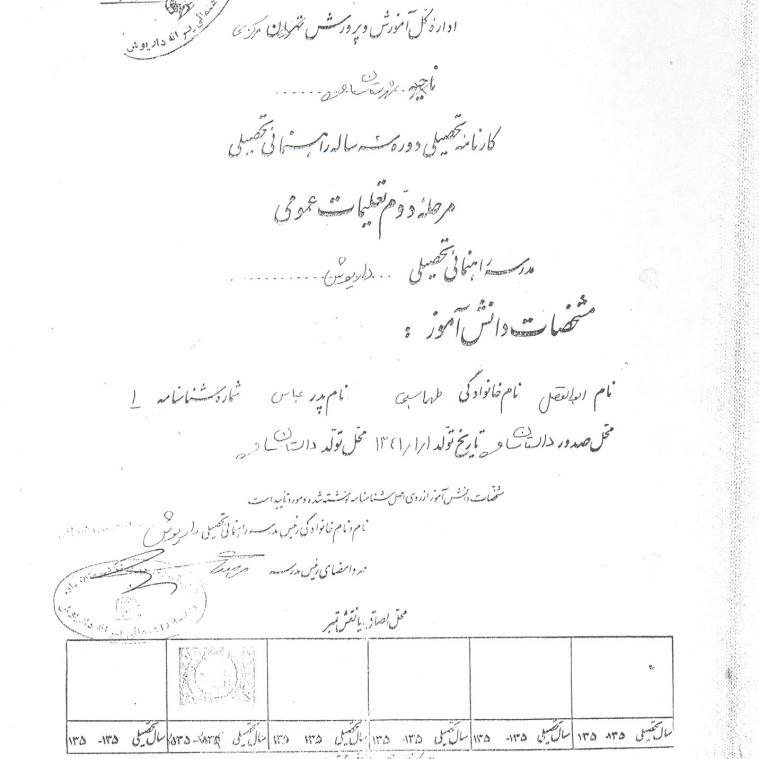 اداره کل آموزش و پرورش تهران مرکزی
ناحیه شهرستان ساوه
کارنامه تحصیلی دوره سه ساله راهنمائی تحصیلی
مرحله دوم تعلیمات عمومی
مدرسه راهنمائی تحصیلی داریوش
مشخصات دانش آموز :
نام ابوالفضل نام خانوادگی طهماسبی نام پدر عباس شماره شناسنامه ۱
محل صدور تاریخ تولد ۱۳۴۱/۱/۱ محل تولد
مشخصات دانش آموز از روی اصل شناسنامه نوشته شده و مورد تأیید است
نام و نام خانوادگی رئیس مدرسه راهنمائی تحصیلی داریوش
مهر و امضای رئیس مدرسه
محل الصاق یا نقش تمبر
سال تحصیلی ۱۳۵ -۱۳۵ سال تحصیلی ۱۳۵ -۱۳۵ سال تحصیلی ۱۳۵ -۱۳۵ سال تحصیلی ۱۳۵ ۱۳۵ سال تحصیلی سال تحصیلی ۱۳۵ -۱۳۵